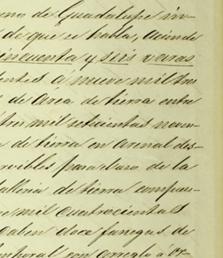 de Guadalupe in-
de que se habla, siendo
cincuenta y seis varas
á nueve mil tres
de área de tierra entre
mil setecientas nove
de tierra en arenal des-
para el uso de la
de tierra compues-
mil cuatrocientas
caben doce fanegas de
con arreglo á